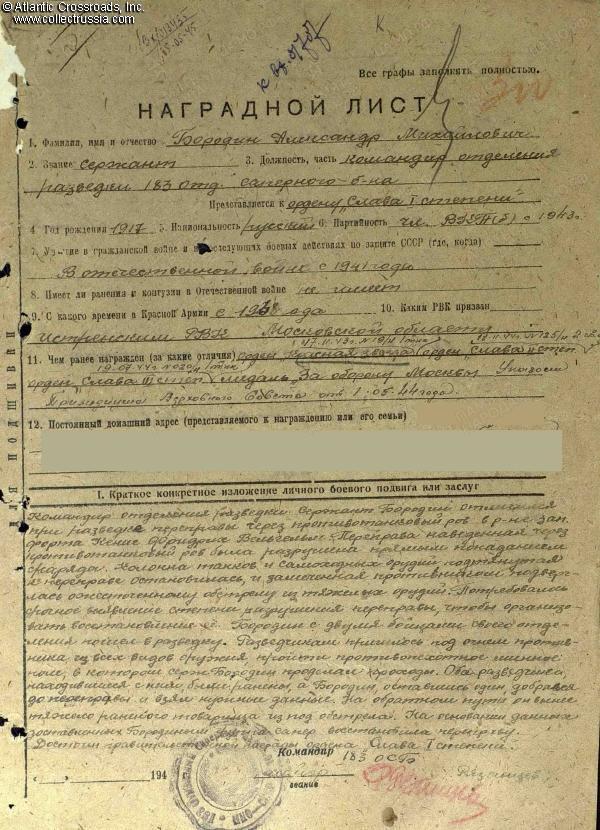 © Atlantic Crossroads, Inc.
www.collectrussia.com
к вх. 01707
К
Все графы заполнять полностью.
НАГРАДНОЙ ЛИСТ
1. Фамилия, имя и отчество Бородин Александр Михайлович
2. Звание сержант 3. Должность, часть командир отделения
разведки 183 отд. саперного б-на
Представляется к ордену „Слава I степени"
4. Год рождения 1917 5. Национальность русский 6. Партийность чл. ВКП(б) с 1943г.
7. Участие в гражданской войне и последующих боевых действиях по защите СССР (где, когда)
В отечественной войне с 1941 года
8. Имеет ли ранения и контузии в Отечественной войне не имеет
9. С какого времени в Красной Армии с 1938 года 10. Каким РВК призван
Истринским РВК Московской области
11. Чем ранее награжден (за какие отличия) орден Красная звезда, орден Слава II степ
орден „Слава III степ", медаль „За оборону Москвы" Указом
Президиума Верховного Совета от 1.05.44 года.
12. Постоянный домашний адрес (представляемого к награждению или его семьи)
ДЛЯ ПОДШИВКИ
I. Краткое конкретное изложение личного боевого подвига или заслуг
Командир отделения разведки Сержант Бородин отличился
при разведке переправы через противотанковый ров в р-не зап.
форта Кениг Фридрих Вильгельм. Переправа наведенная через
противотанковый ров была разрушена прямым попаданием
снаряда. Колонна танков и самоходных орудий подтянутая
к переправе остановилась, и замеченная противником подверг-
лась ожесточенному обстрелу из тяжелых орудий. Потребовалось
срочное выявление степени разрушения переправы, чтобы организо-
вать восстановление её. Бородин с двумя бойцами своего отде-
ления пошел в разведку. Разведчикам пришлось под огнем против-
ника из всех видов оружия, пройти противопехотное минное
поле, в котором серж. Бородин проделал проходы. Оба разведчика,
находившиеся с ним, были ранены, а Бородин, оставшись один, добрался
до переправы и взял нужные данные. На обратном пути он вынес
тяжело раненого товарища из под обстрела. На основании данных
доставленных Бородиным сапер восстановила переправу.
Достоин правительственной награды ордена Слава I степени.
Командир 183 ОСБ
194 г.
звание
Рязанцев